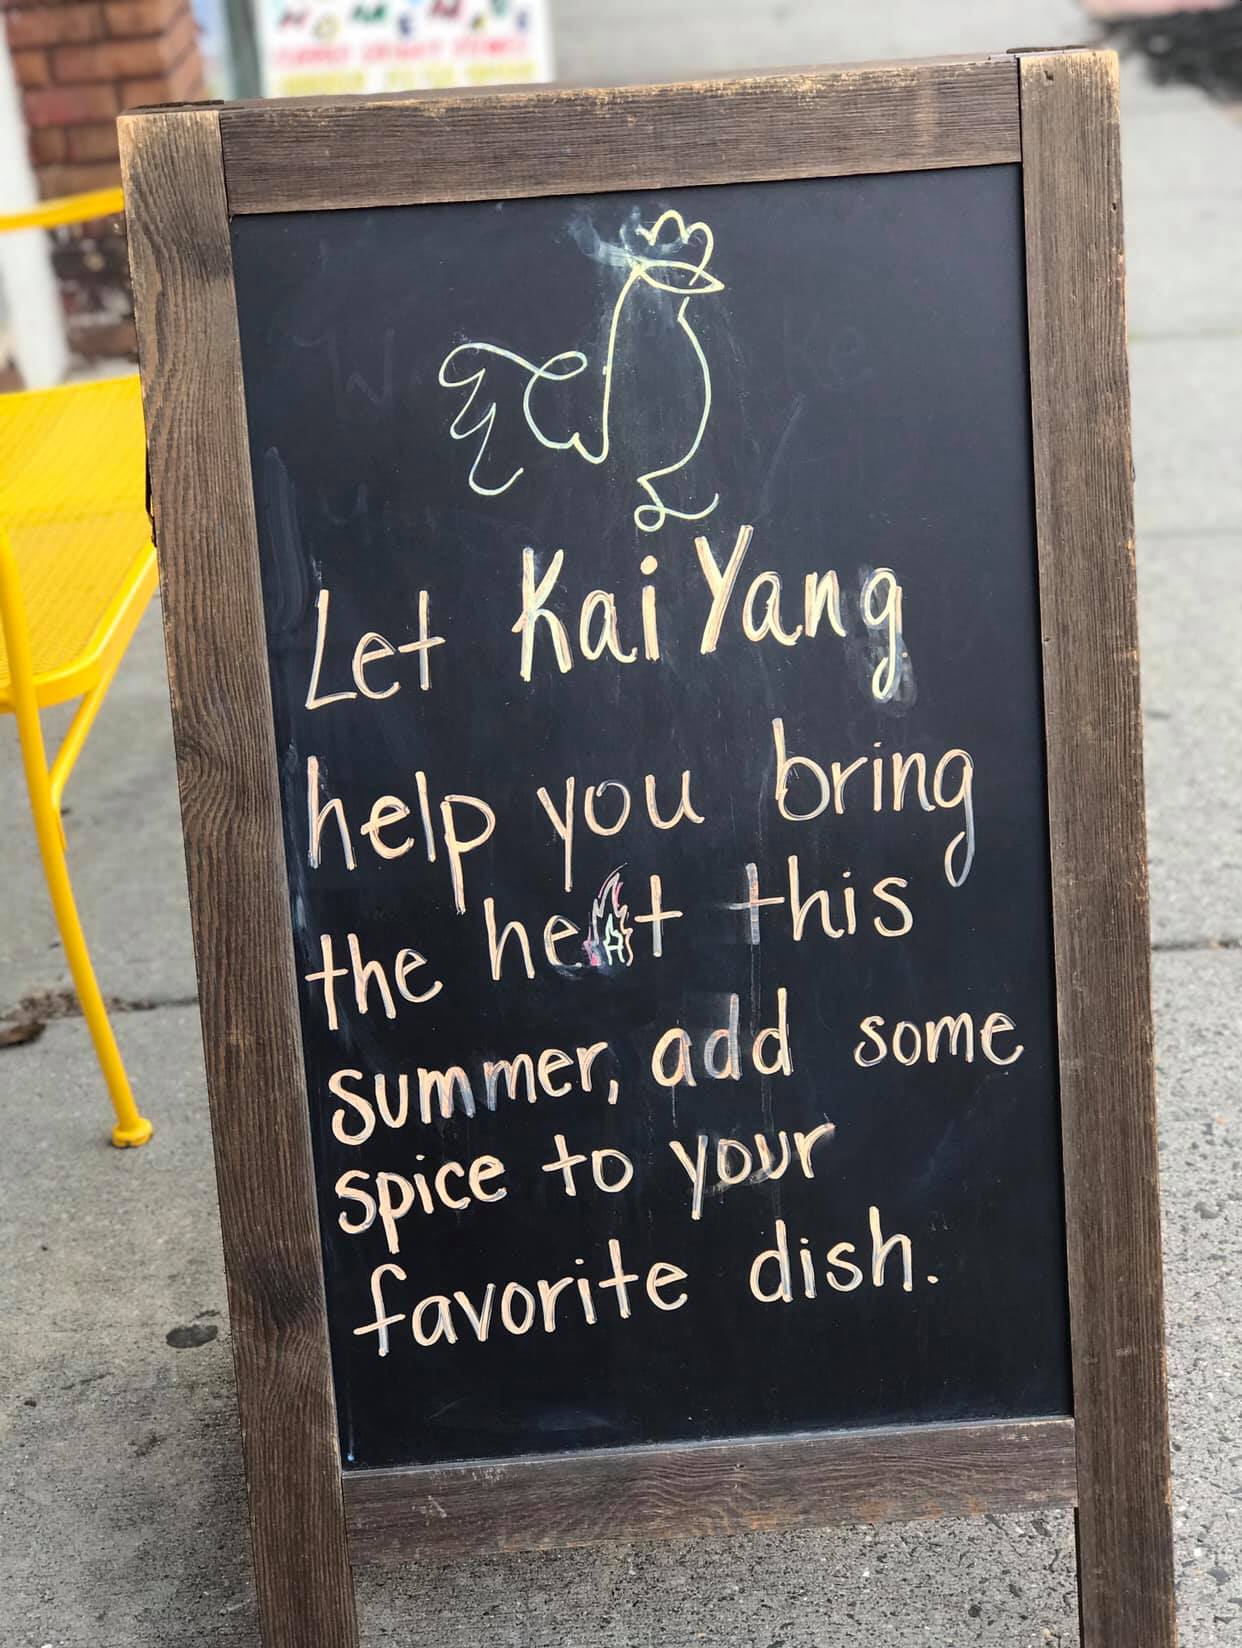 Let Kai Yang
help you bring
the heat this
summer, add some
spice to your
favorite dish.